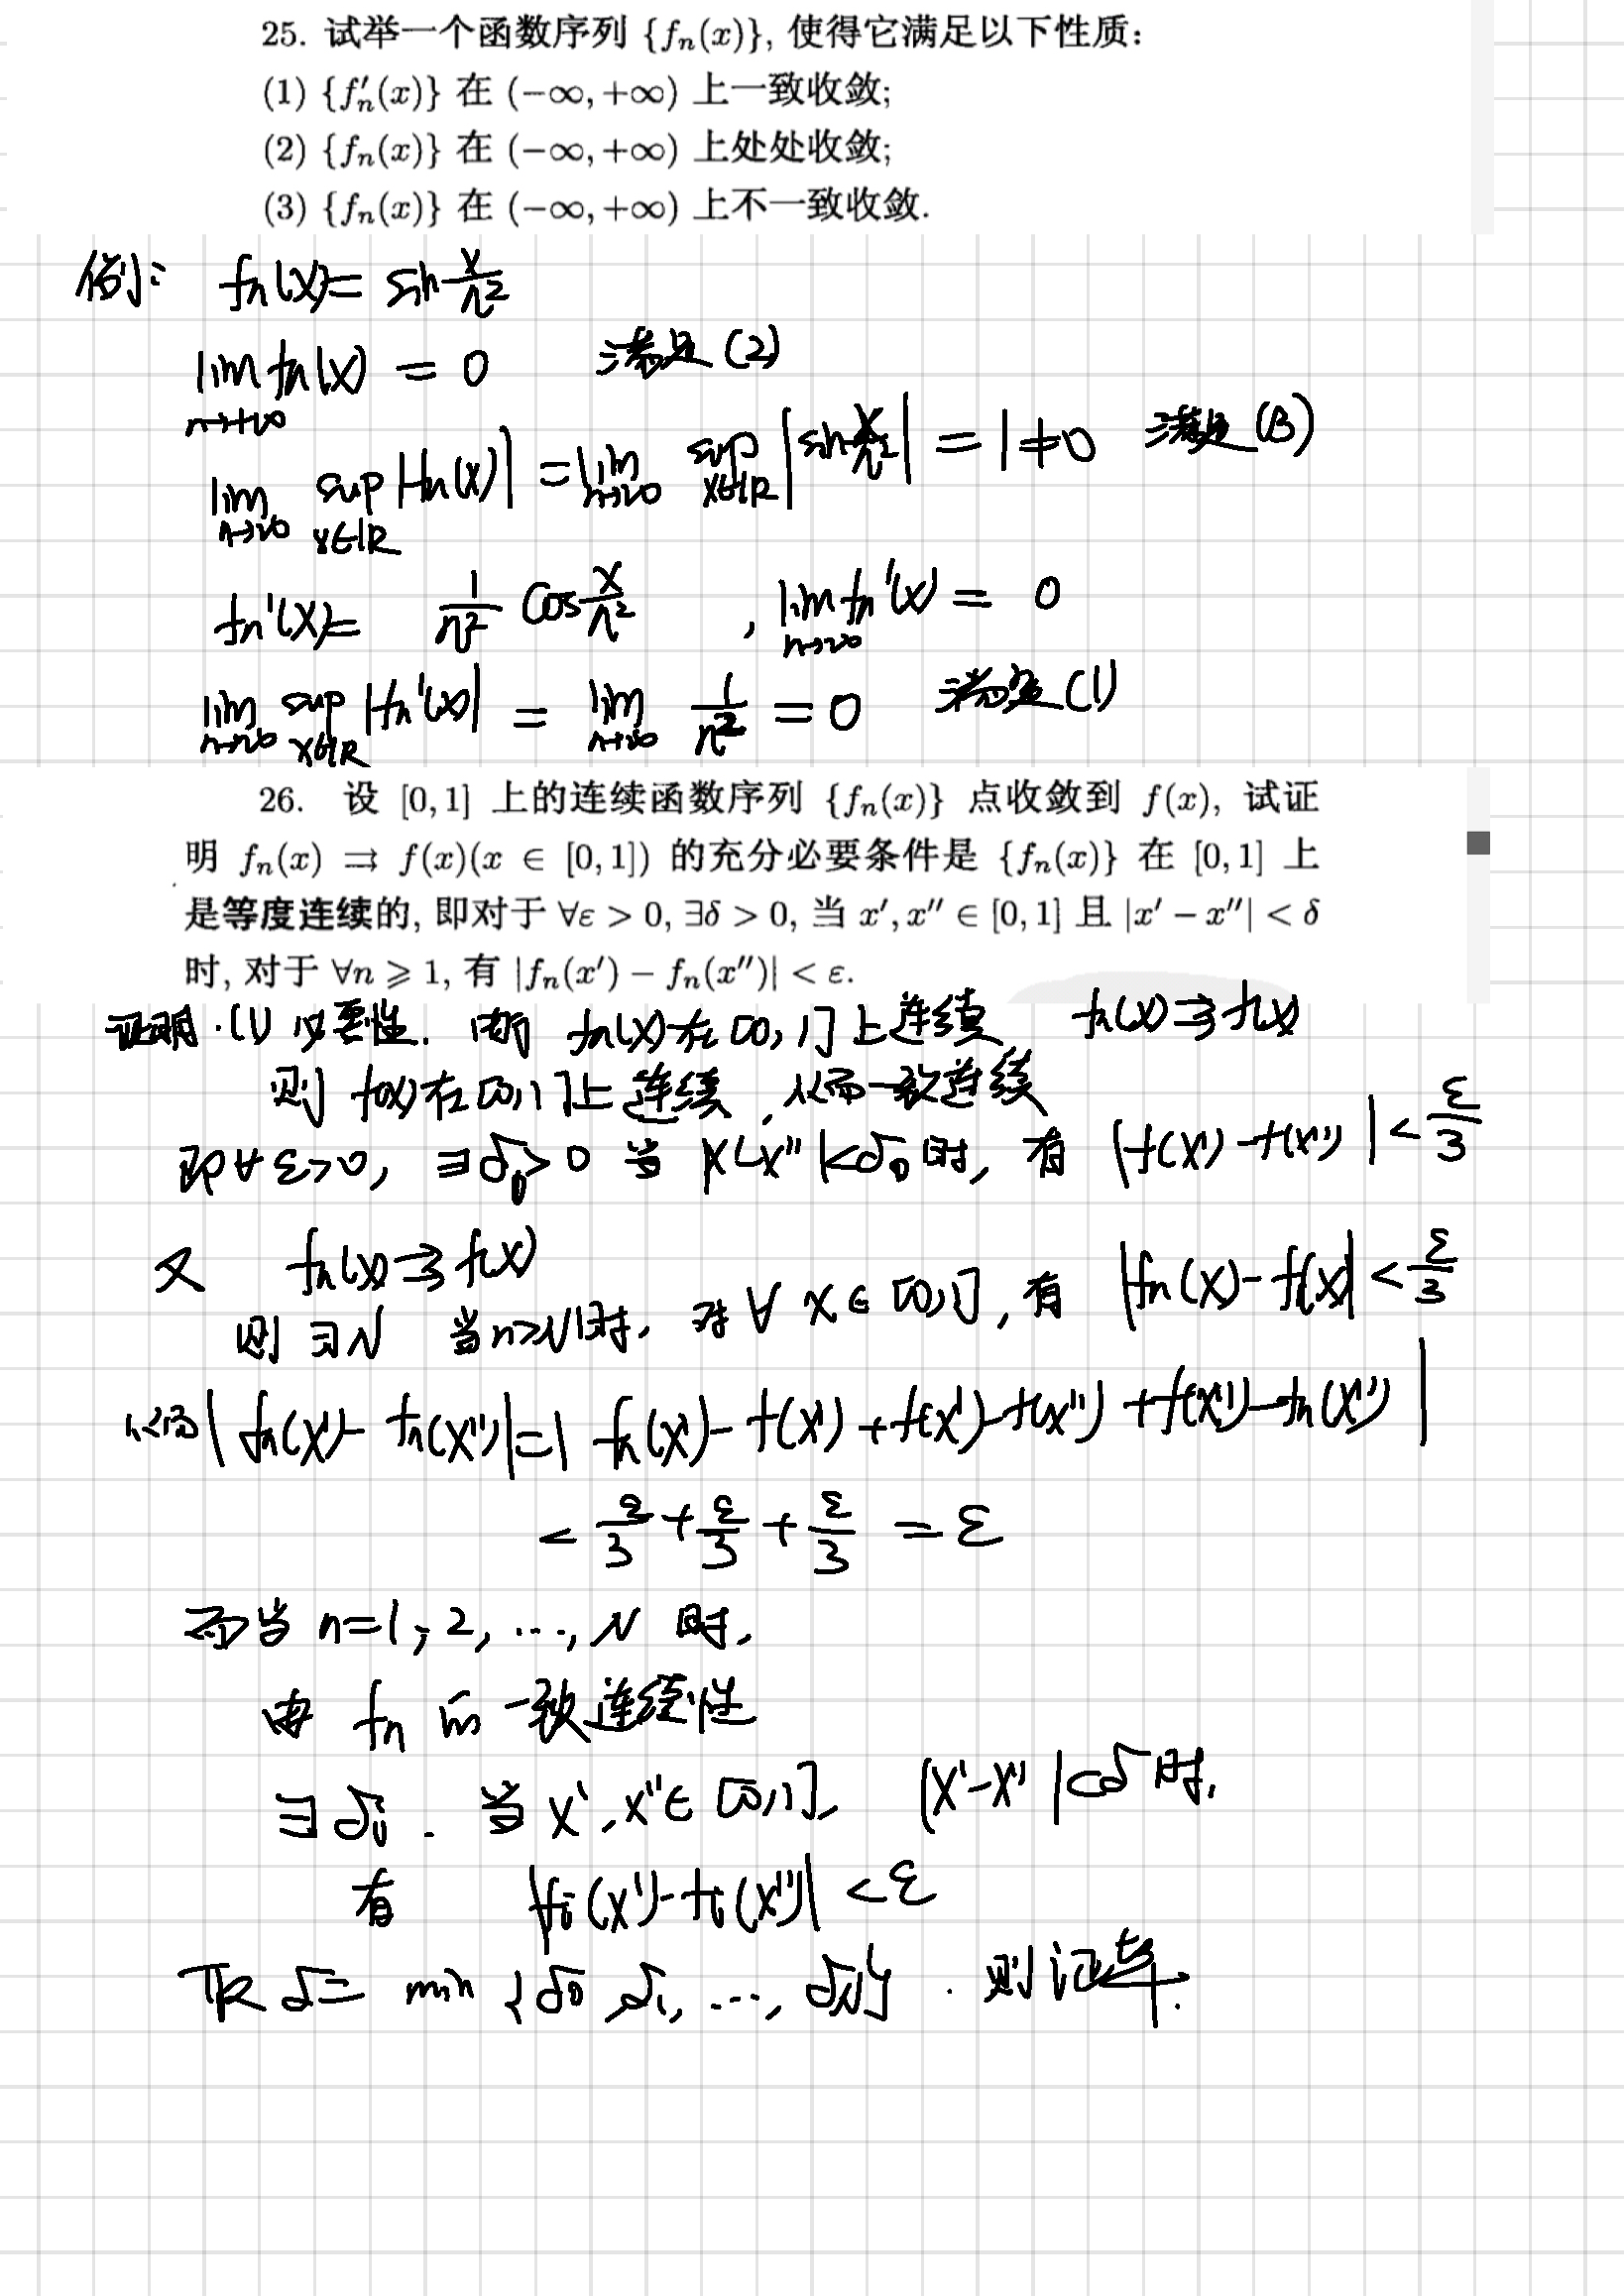 25. 试举一个函数序列 {fₙ(x)}, 使得它满足以下性质:
(1) {fₙ′(x)} 在 (−∞, +∞) 上一致收敛;
(2) {fₙ(x)} 在 (−∞, +∞) 上处处收敛;
(3) {fₙ(x)} 在 (−∞, +∞) 上不一致收敛.
例: fₙ(x) = sin x/n²
lim_{n→+∞} fₙ(x) = 0 满足(2)
lim_{n→∞} sup_{x∈ℝ} |fₙ(x)| = lim_{n→∞} sup_{x∈ℝ} |sin x/n²| = 1 ≠ 0 满足(3)
fₙ'(x) = 1/n² cos x/n² , lim_{n→∞} fₙ'(x) = 0
lim_{n→∞} sup_{x∈ℝ} |fₙ'(x)| = lim_{n→∞} 1/n² = 0 满足(1)
26. 设 [0, 1] 上的连续函数序列 {fₙ(x)} 点收敛到 f(x), 试证
明 fₙ(x) ⇉ f(x)(x ∈ [0, 1]) 的充分必要条件是 {fₙ(x)} 在 [0, 1] 上
是等度连续的, 即对于 ∀ε > 0, ∃δ > 0, 当 x′, x″ ∈ [0, 1] 且 |x′ − x″| < δ
时, 对于 ∀n ⩾ 1, 有 |fₙ(x′) − fₙ(x″)| < ε.
证明.(1) 必要性. 由于 fₙ(x)在[0,1]上连续 fₙ(x)⇉f(x)
则 f(x)在[0,1]上连续, 从而一致连续
即∀ε>0, ∃δ₀>0 当 |x'-x''|<δ₀时, 有 |f(x')-f(x'')|<ε/3
又 fₙ(x)⇉f(x)
则 ∃N 当n>N时, 对∀x∈[0,1], 有 |fₙ(x)-f(x)|<ε/3
从而|fₙ(x')-fₙ(x'')|=|fₙ(x')-f(x')+f(x')-f(x'')+f(x'')-fₙ(x'')|
< ε/3+ε/3+ε/3 = ε
而当 n=1,2,…,N 时,
由 fₙ 的一致连续性
∃δᵢ. 当 x',x''∈[0,1], |x'-x''|<δ时,
有 |fᵢ(x')-fᵢ(x'')|<ε
取δ= min{δ₀,δ₁,…,δN}. 则证毕.